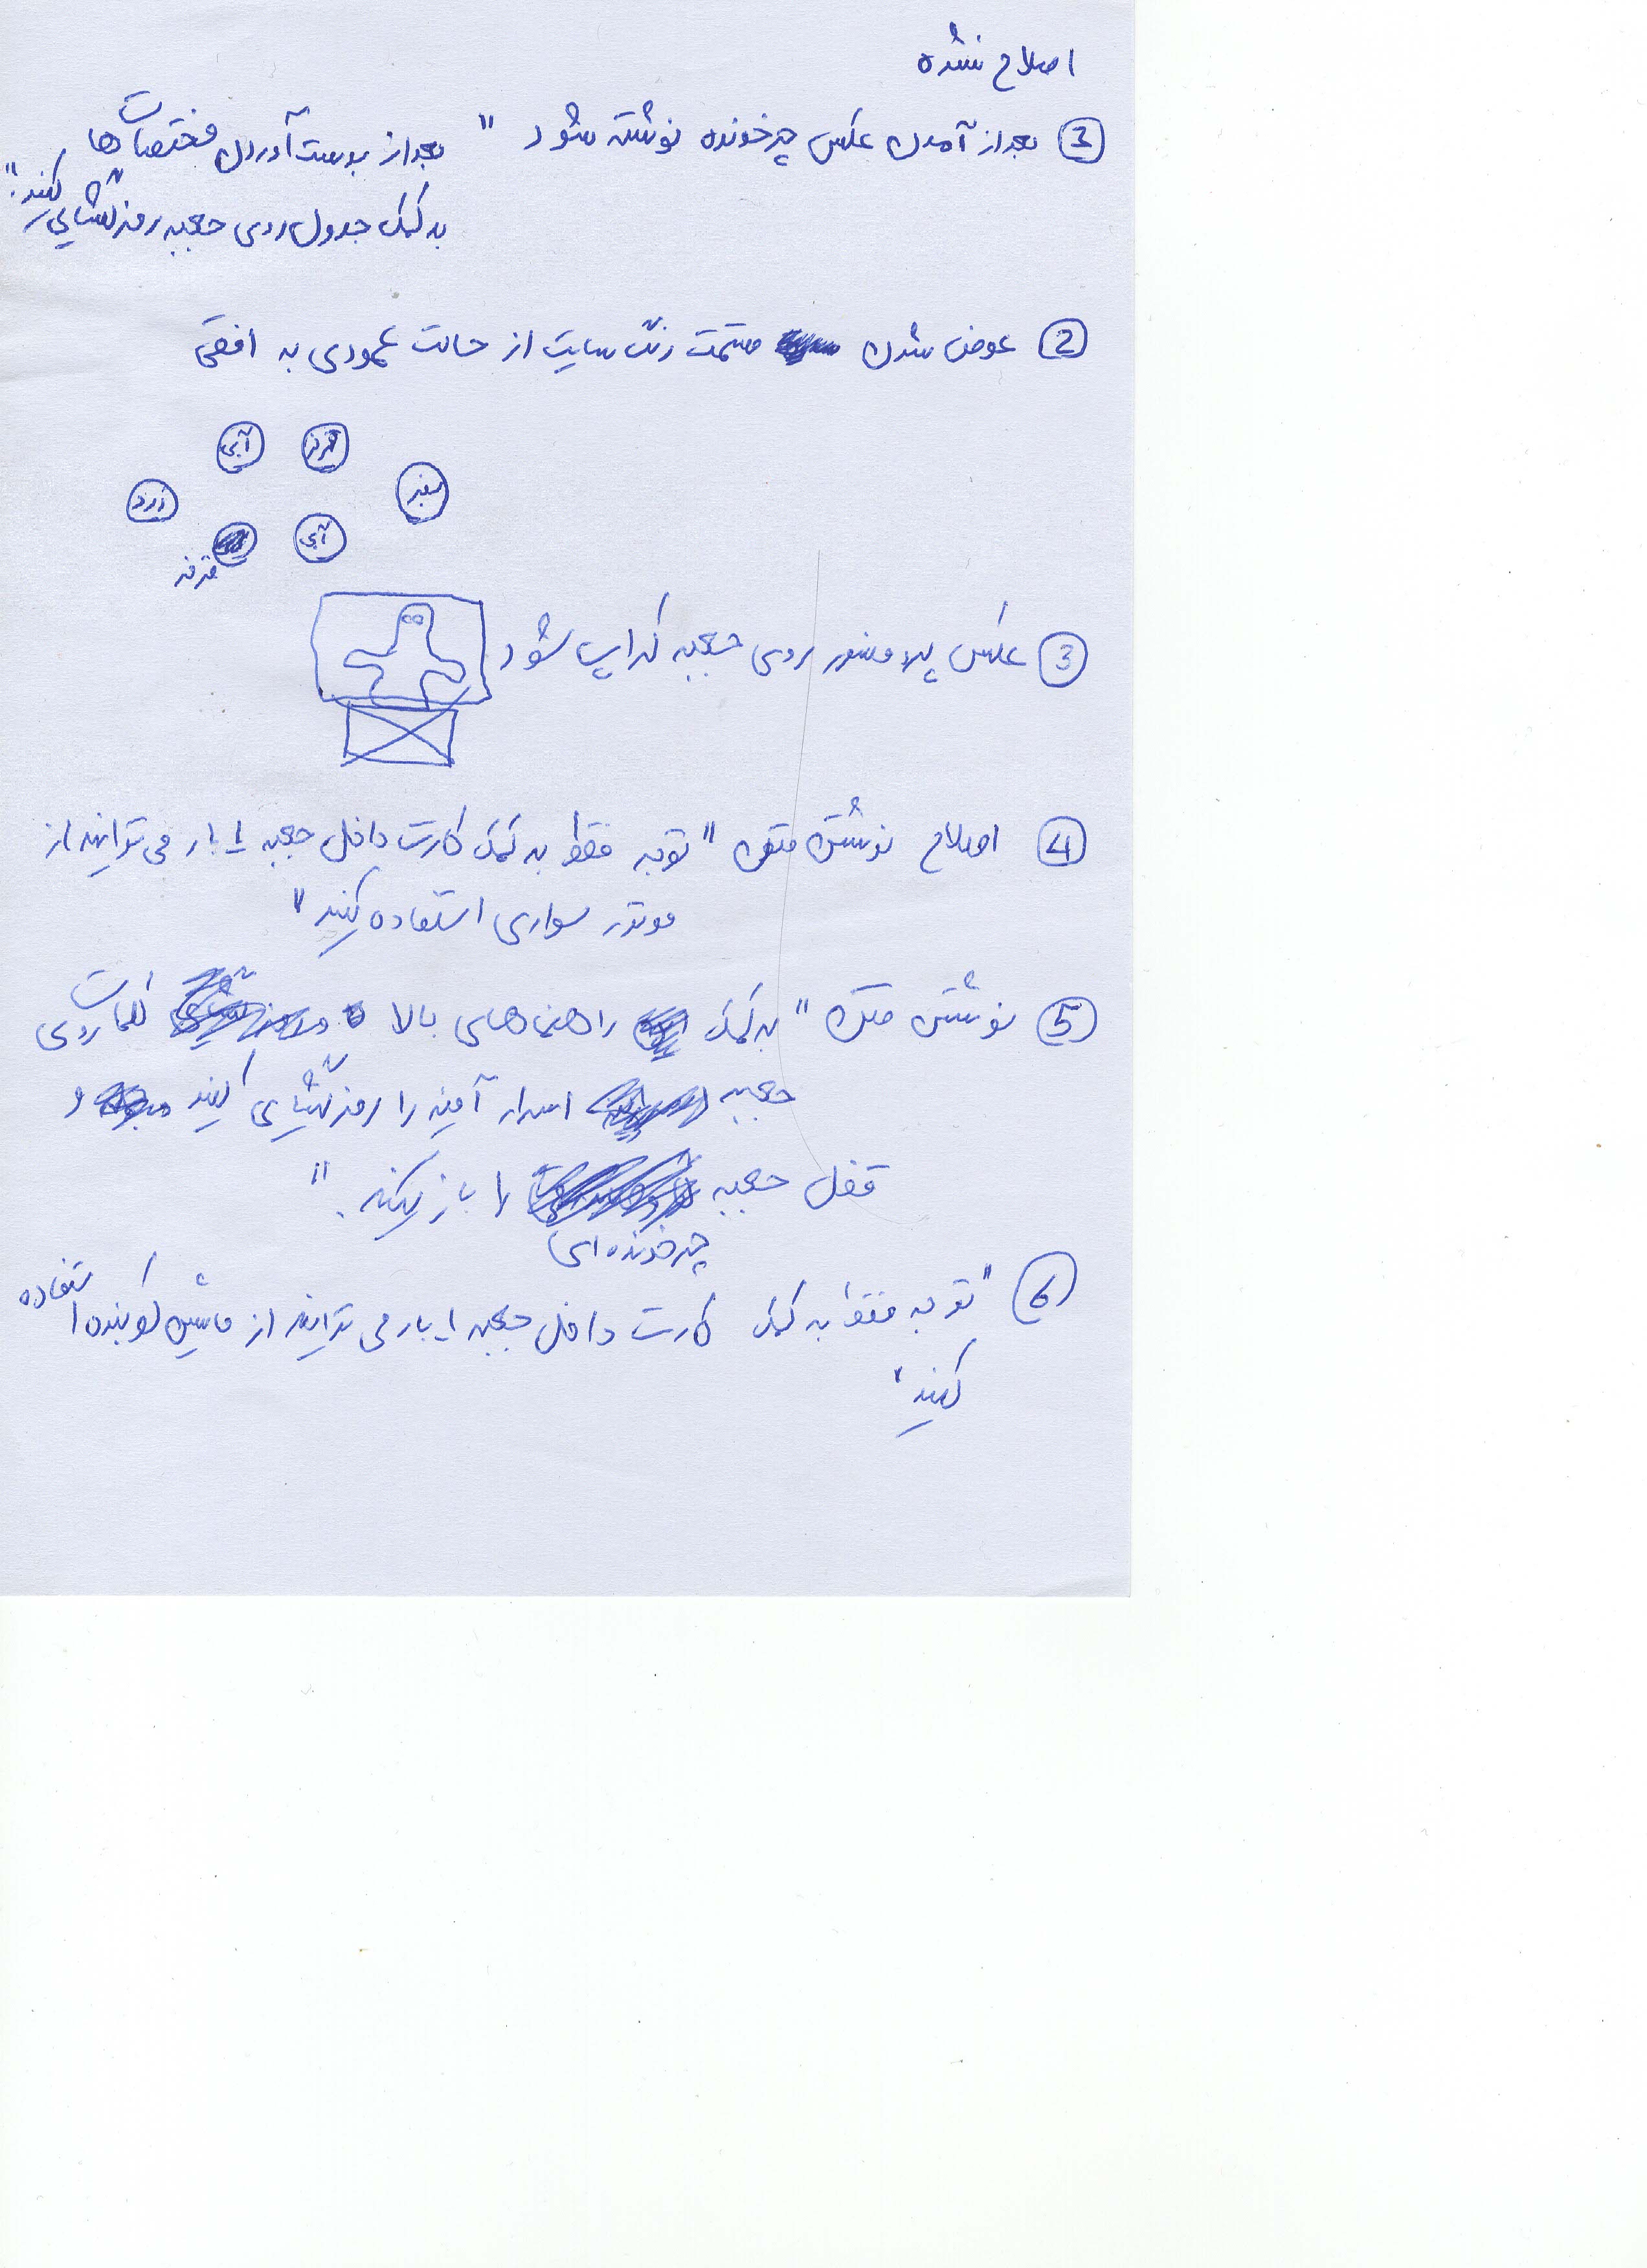 اصلاح نشده
① بعد از آمدن عکس چرخونده نوشته شود " بعد از بدست آوردن مختصات ها
به کمک جدول روی جعبه رمزگشایی کنید."
② عوض شدن قسمت رنگ سایت از حالت عمودی به افقی
سفید قرمز آبی زرد
آبی قرمز
③ عکس پلا منسور روی جعبه کراپ شود
④ اصلاح نوشتن متن " توجه فقط به کمک کارت داخل جعبه ۱ بار می توانید از
موتور سواری استفاده کنید "
⑤ نوشتن متن " به کمک راهنماهای بالا کلمات روی
جعبه اسرار آمیز را رمزگشایی کنید و
قفل جعبه را باز کنید. "
چرخونده ای
⑥ " توجه فقط به کمک کارت داخل جعبه ۱ بار می توانید از ماشین گوینده استفاده
کنید "